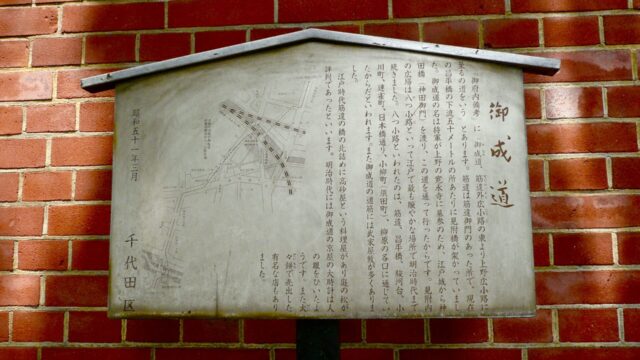 御成道
『御府内備考』に「御成道、筋違外広小路の東より上野広小路に
至るの道をいう」とあります。筋違は筋違御門のあった所で、現在
の昌平橋の下流五十メートルの所あたりに見附橋が架かっていまし
た。御成道の名は将軍が上野の寛永寺に墓参のため、江戸城から神
田橋（神田御門）を渡り、この道を通って行ったからです。見附内
の広場は八つ小路といって江戸で最も賑やかな場所で明治時代まで
続きました。八つ小路といわれたのは、筋違、昌平橋、駿河台、小
川町、連雀町、日本橋通り、小柳町（須田町）、柳原の各口に通じてい
たからだといわれます。また御成道の道筋には武家屋敷が多くありま
した。
江戸時代筋違の橋の北詰めに高砂屋という料理屋があり庭の松が
評判であったといいます。明治時代には御成道の京屋の大時計は人
の眼をひいたよ
うです。また太
々餅で売出した
有名な店もあり
ました。
昭和五十一年三月
千代田区